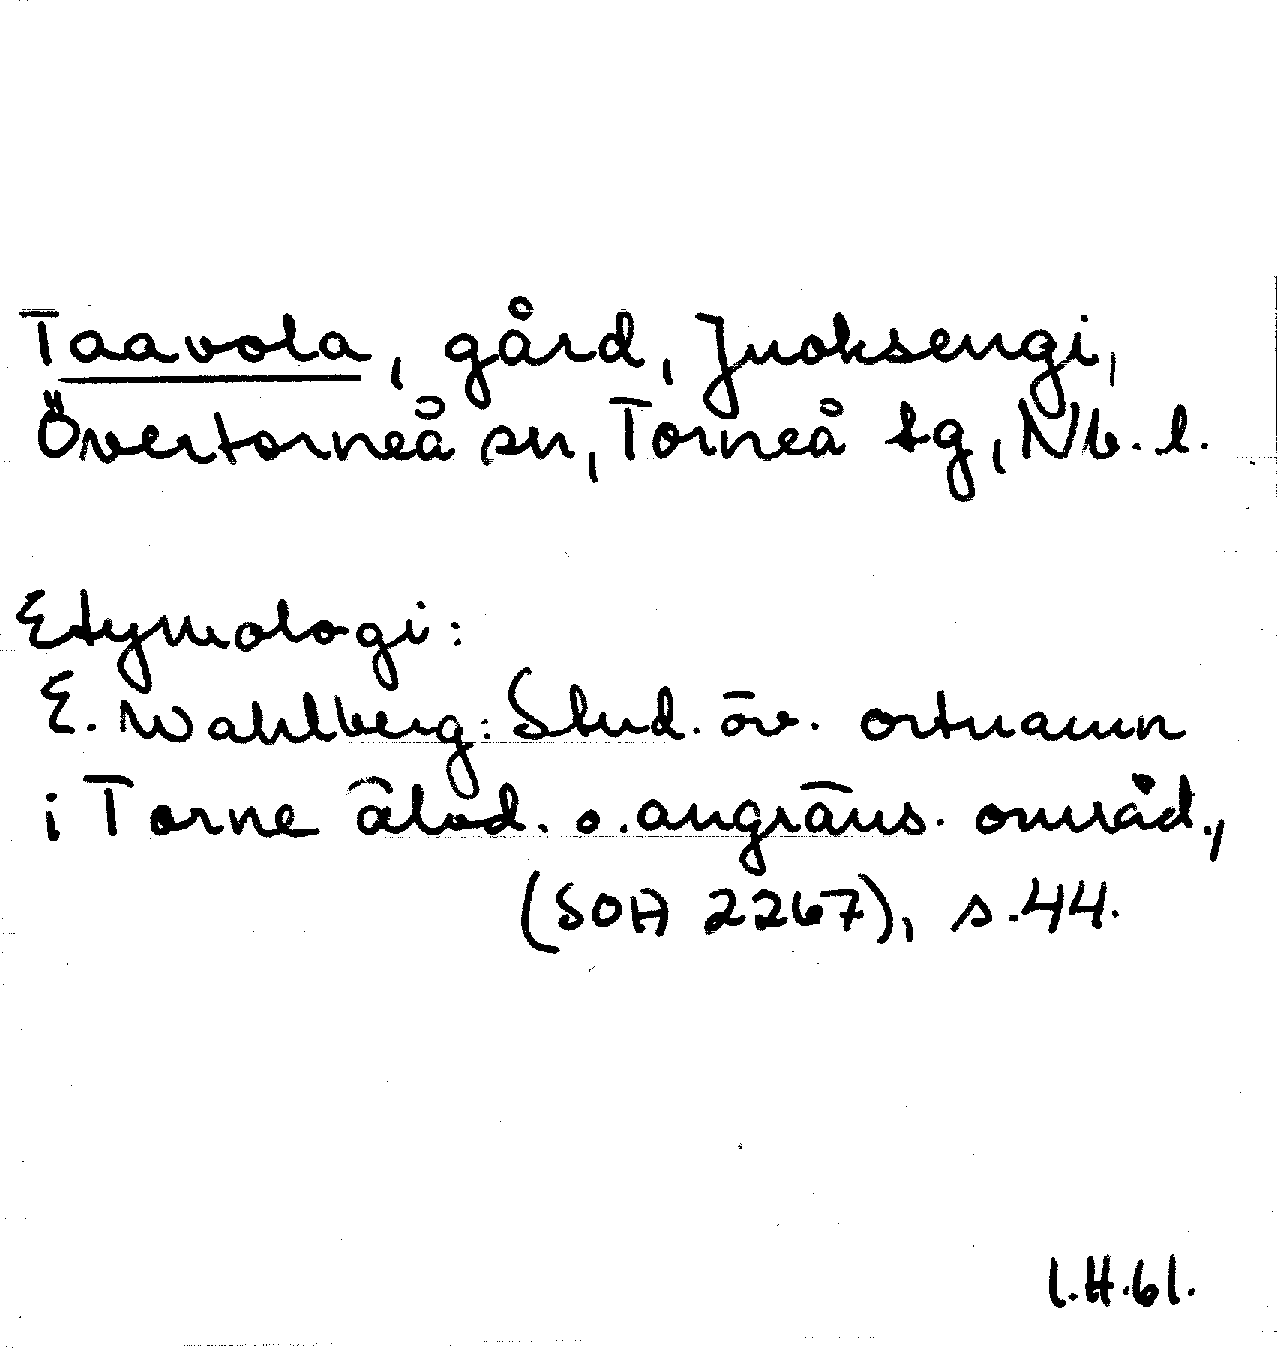 Taavola, gård, Juoksengi,
Övertorneå sn, Torneå tg, Nb. l.
Etymologi:
E. Wahlberg: Stud. öv. ortnamn
i Torne älvd. o. angräns. områd.,
(SOA 2267), s. 44.
I.H.61.